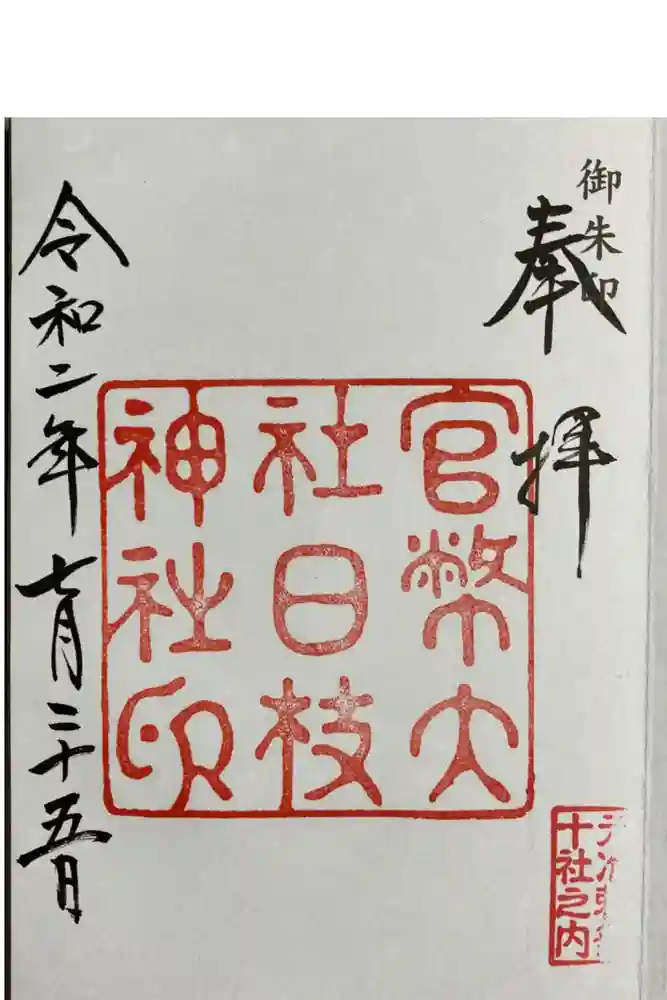 御朱印
奉拝
官幣大
社日枝
神社印
十社之内
令和二年七月二十五日